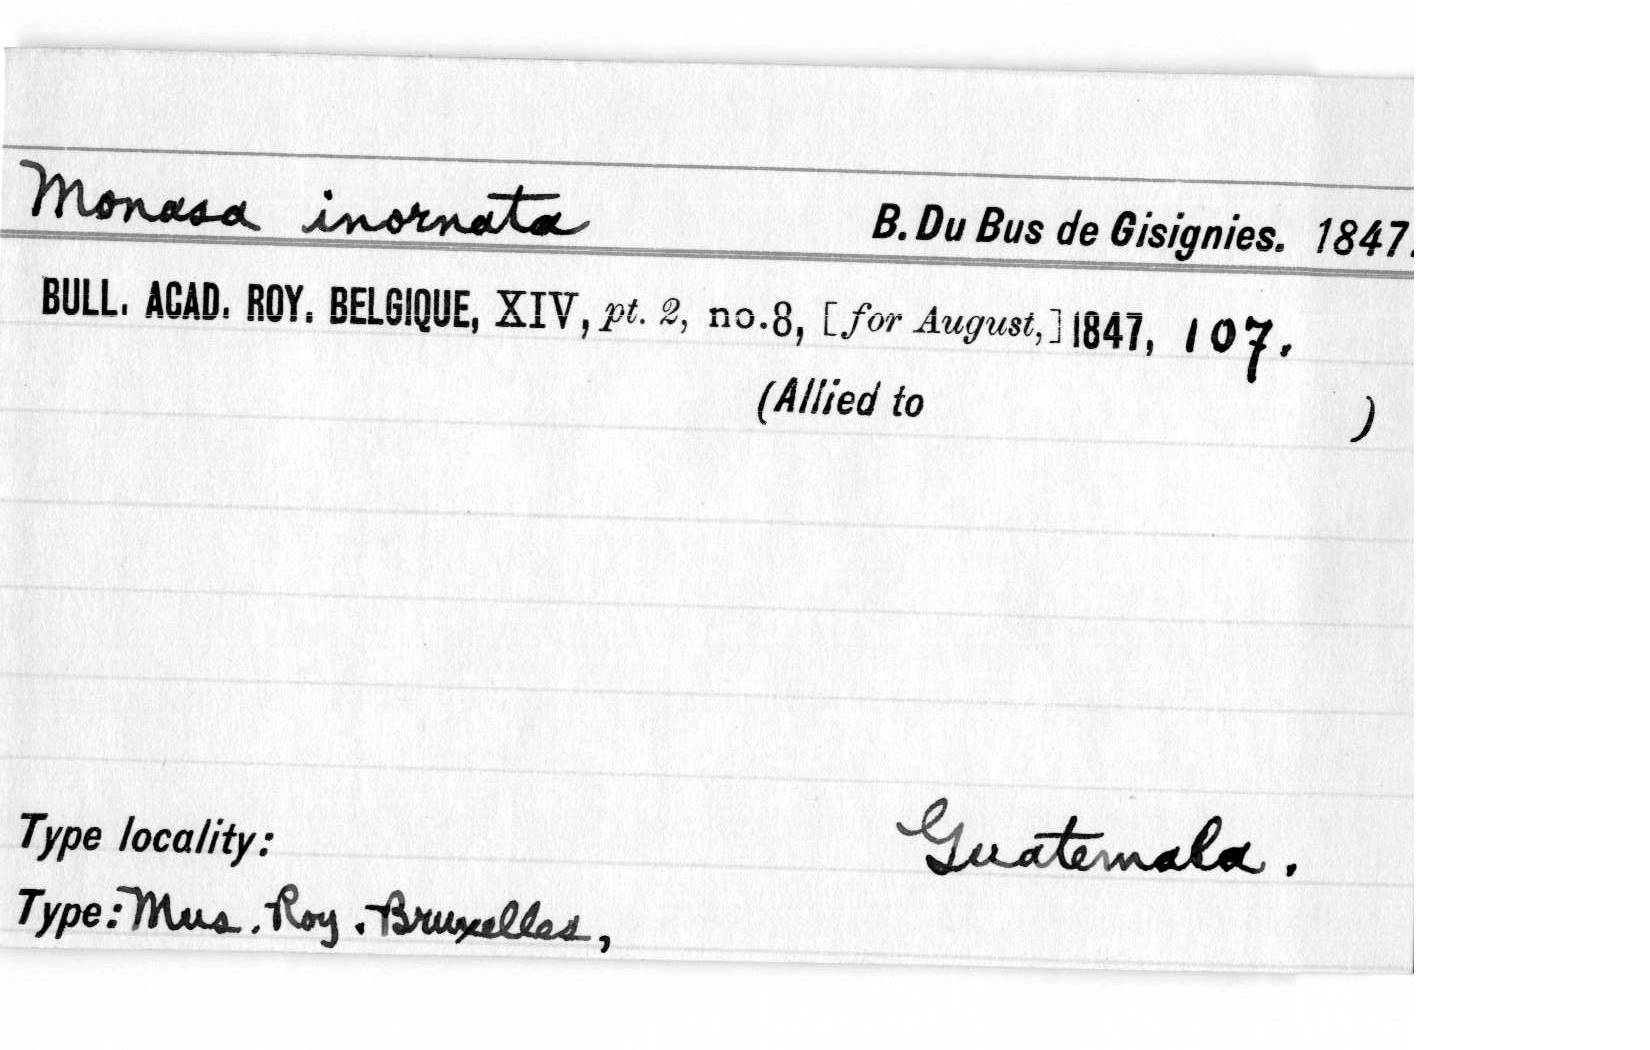 Monasa inornata B. Du Bus de Gisignies. 1847.
BULL. ACAD. ROY. BELGIQUE, XIV, pt. 2, no. 8, [for August,] 1847, 107.
(Allied to )
Type locality: Guatemala.
Type: Mus. Roy. Bruxelles,